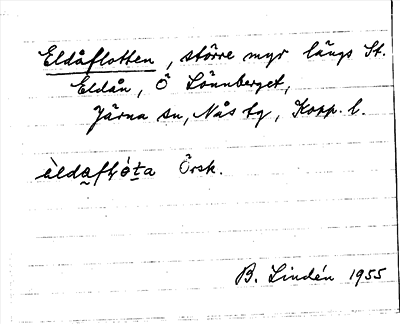 Eldåflotten, större myr längs St.
Eldån, Ö Lönnberget,
Järna sn, Nås tg, Kopp. l.
Örsk.
B. Lindén 1955